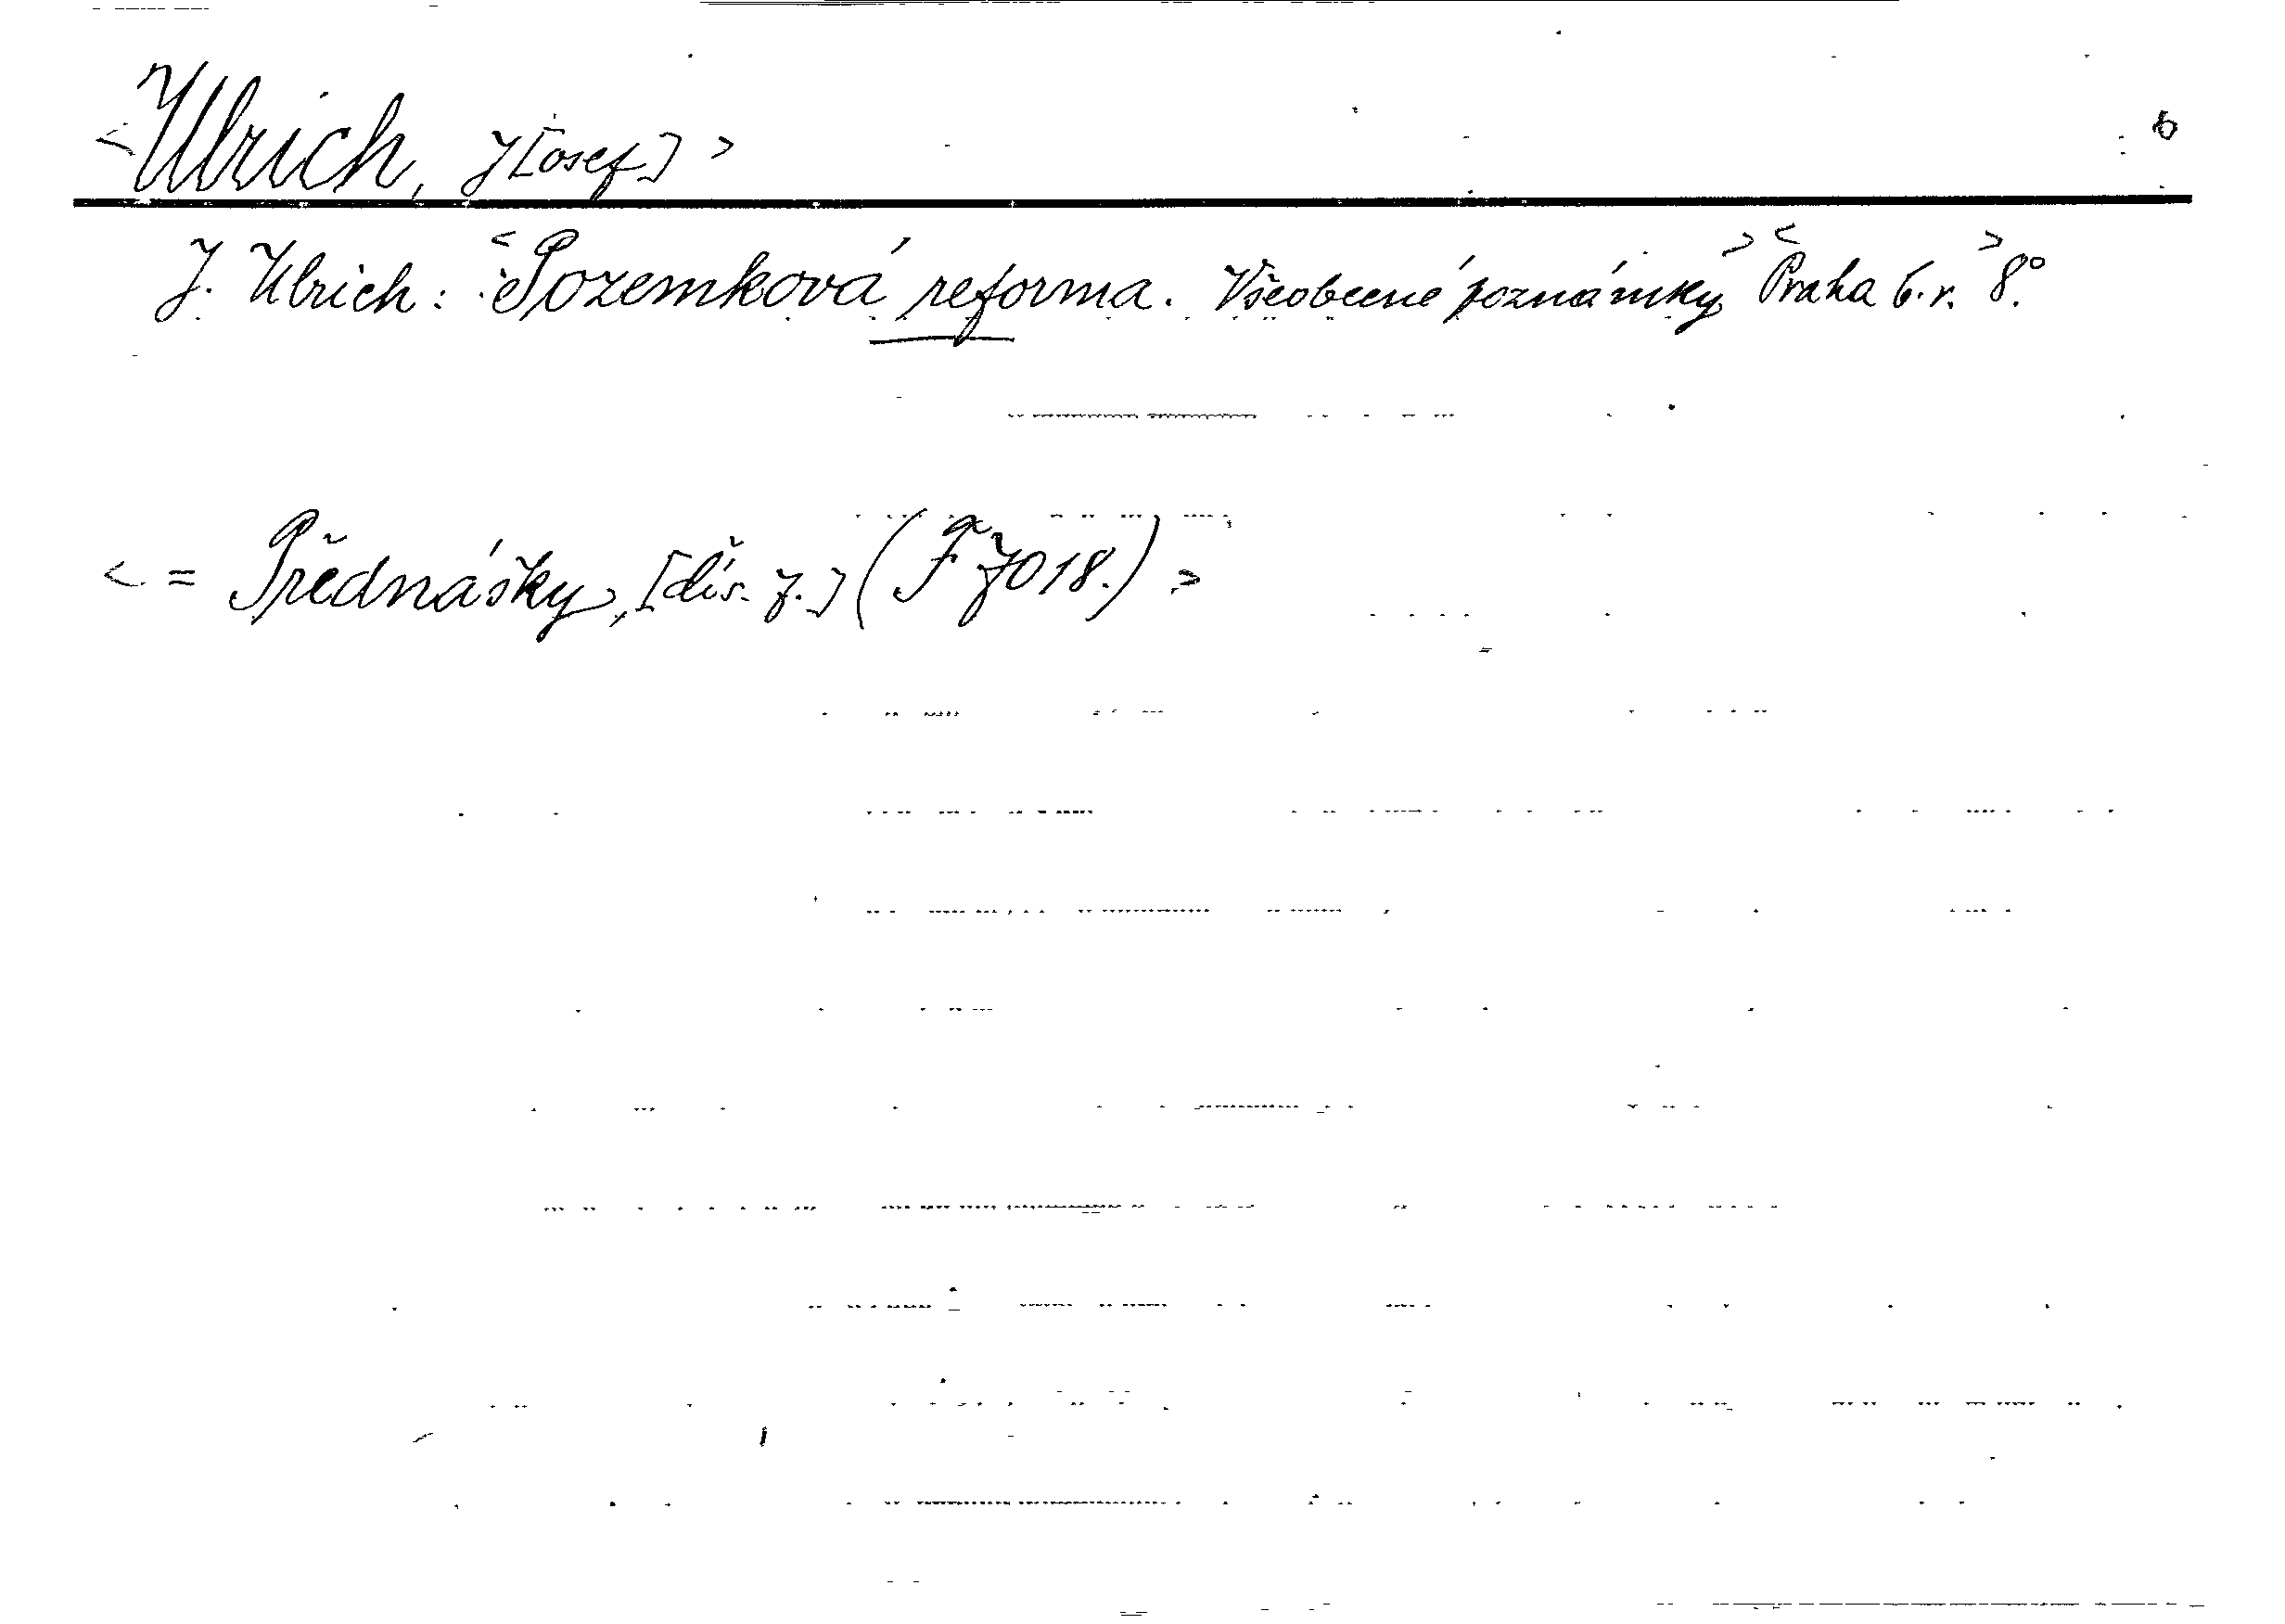 <Ulrich, J[osef]> b
J. Ulrich: <Pozemková reforma. Všeobecné poznámky> <Praha b.r.> 8°.
<= Přednášky, [čís. 7.] (F 7018.)>